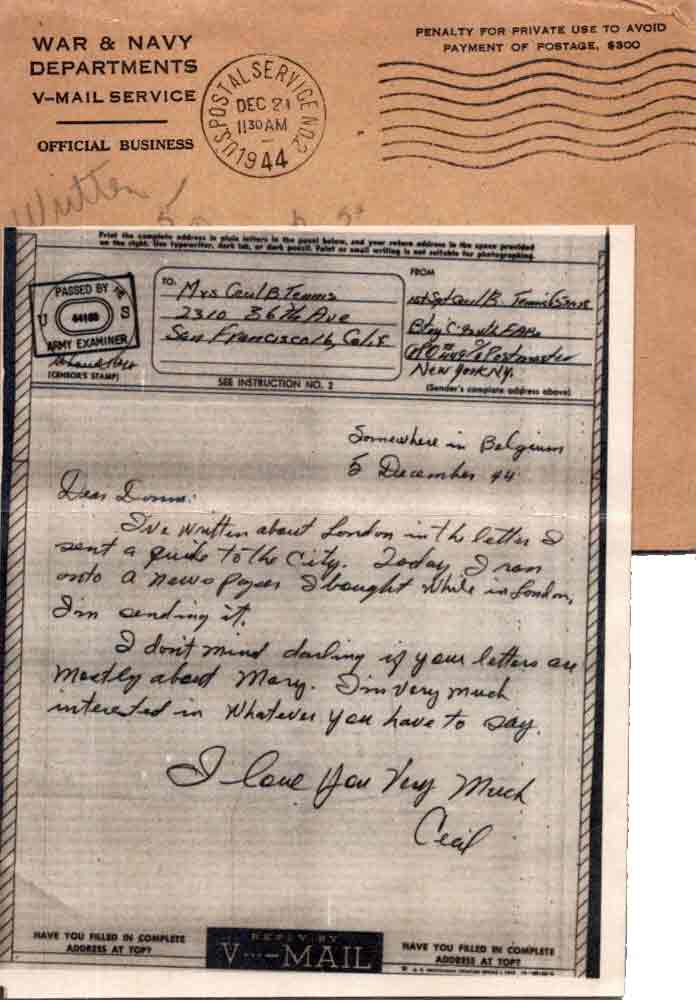 WAR & NAVY
DEPARTMENTS
V-MAIL SERVICE
OFFICIAL BUSINESS
U.S. POSTAL SERVICE NO. 2
DEC 21
1130 AM
1944
PENALTY FOR PRIVATE USE TO AVOID
PAYMENT OF POSTAGE, $300
Written
Print the complete address in plain letters in the panel below, and your return address in the space provided
on the right. Use typewriter, dark ink, or dark pencil. Faint or small writing is not suitable for photographing.
PASSED BY
U S
ARMY EXAMINER
(CENSOR'S STAMP)
TO:
Mrs Cecil B. Tennis
2310 36th Ave
San Francisco 16, Calif
SEE INSTRUCTION NO. 2
FROM
1st Sgt Cecil B. Tennis
Postmaster
New York NY.
(Sender's complete address above)
Somewhere in Belgium
5 December 44
Dear Donna:
I've written about London in the letter I
sent a guide to the City. Today I ran
onto a news paper I bought while in London,
I'm sending it.
I don't mind darling if your letters are
mostly about Mary. I'm very much
interested in whatever you have to say.
I love You Very Much
Cecil
HAVE YOU FILLED IN COMPLETE
ADDRESS AT TOP?
REPLY BY
V···-MAIL
HAVE YOU FILLED IN COMPLETE
ADDRESS AT TOP?